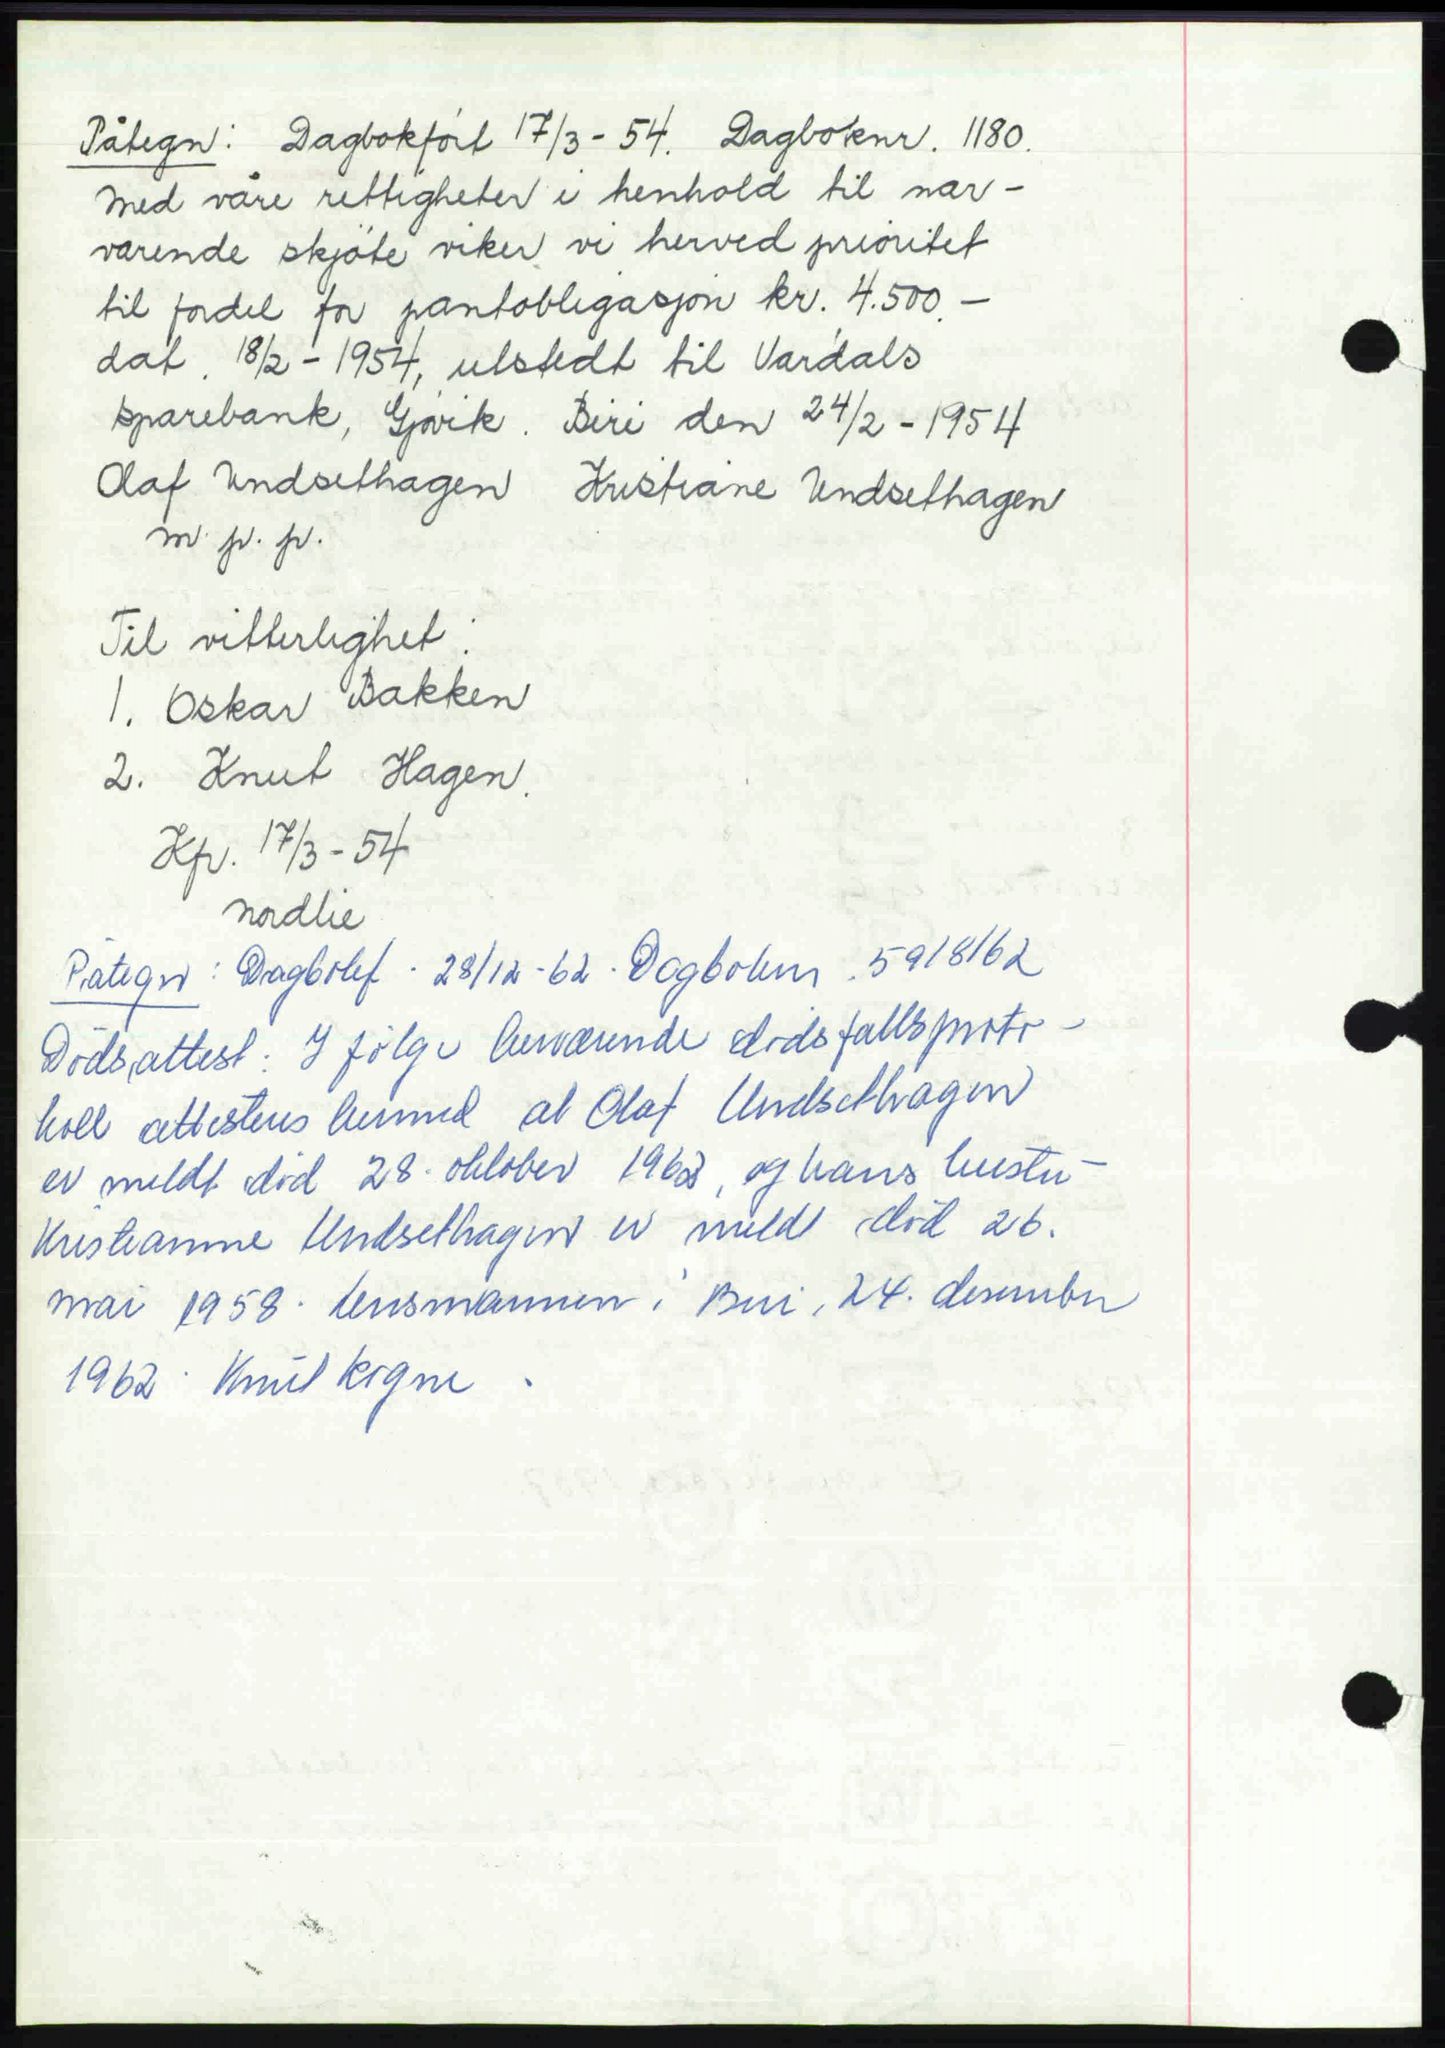 Påtegn: Dagbokført 17/3-54. Dagboknr. 1180.
Med våre rettigheter i henhold til nær-
værende skjöte viker vi herved prioritet
til fordel for pantobligasjon kr. 4.500.-
dat. 18/2-1954, utstedt til Vardals
sparebank, Gjøvik. Biri den 24/2-1954
Olaf Undsethagen Kristiane Undsethagen
m.p.p.
Til vitterlighet:
1. Oskar Bakken
2. Knut Hagen.
Kp. 17/3-54
Nordlie
Påtegn: Dagbokf. 28/12-62. Dagboknr. 5918/62
Dödsattest: I følge herværende dødsfallsproto-
koll attesteres hermed at Olaf Undsethagen
er meldt död 28. oktober 1962, og hans hustru
Kristianne Undsethagen er meldt död 26.
mai 1958. Lensmannen i Biri, 24. desember
1962. Knut